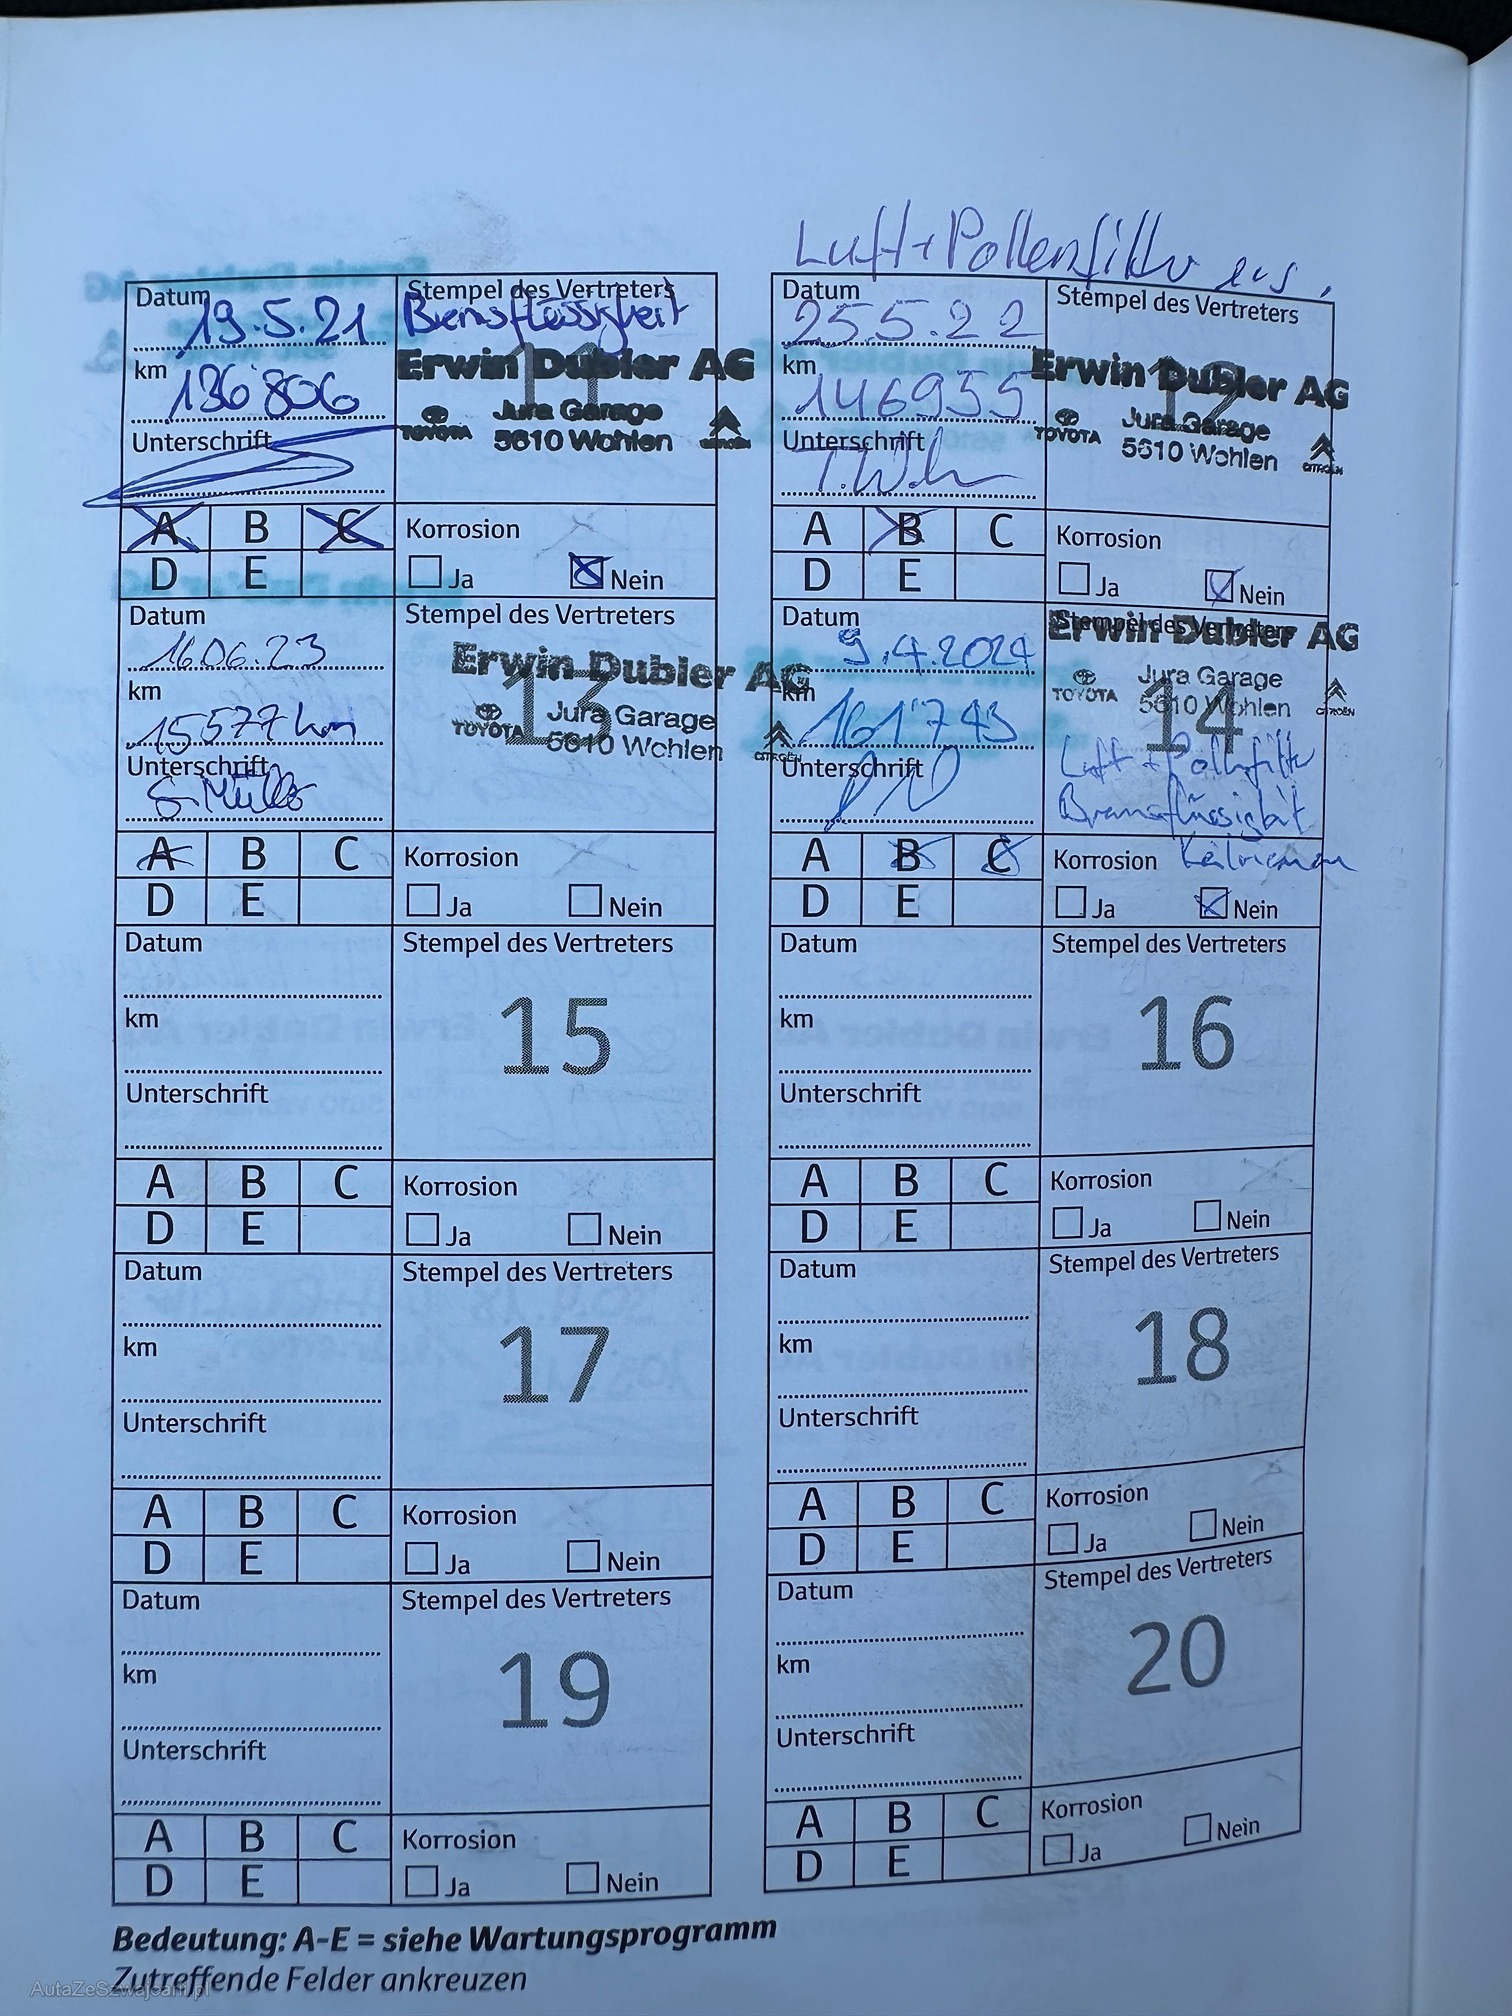 Luft + Pollenfilter ers.
Datum 19.5.21
Stempel des Vertreters
Bremsflüssigkeit
km 136'806
11
Erwin Dubler AG
TOYOTA Jura Garage
5610 Wohlen
CITROËN
Unterschrift
A B C
D E
Korrosion
Ja Nein
Datum 25.5.22
Stempel des Vertreters
km 146955
12
Erwin Dubler AG
TOYOTA Jura Garage
5610 Wohlen
CITROËN
Unterschrift
A B C
D E
Korrosion
Ja Nein
Datum 16.06.23
Stempel des Vertreters
km 15577 km
13
Erwin Dubler AG
TOYOTA Jura Garage
5610 Wohlen
CITROËN
Unterschrift
S. Müller
A B C
D E
Korrosion
Ja Nein
Datum 9.4.2024
Stempel des Vertreters
km 161'743
14
Erwin Dubler AG
TOYOTA Jura Garage
5610 Wohlen
CITROËN
Luft + Pollenfilter
Bremsflüssigkeit
Keilriemen
Unterschrift
A B C
D E
Korrosion
Ja Nein
Datum
Stempel des Vertreters
km
15
Unterschrift
A B C
D E
Korrosion
Ja Nein
Datum
Stempel des Vertreters
km
16
Unterschrift
A B C
D E
Korrosion
Ja Nein
Datum
Stempel des Vertreters
km
17
Unterschrift
A B C
D E
Korrosion
Ja Nein
Datum
Stempel des Vertreters
km
18
Unterschrift
A B C
D E
Korrosion
Ja Nein
Datum
Stempel des Vertreters
km
19
Unterschrift
A B C
D E
Korrosion
Ja Nein
Datum
Stempel des Vertreters
km
20
Unterschrift
A B C
D E
Korrosion
Ja Nein
Bedeutung: A-E = siehe Wartungsprogramm
Zutreffende Felder ankreuzen
AutaZeSzwajcarii.pl